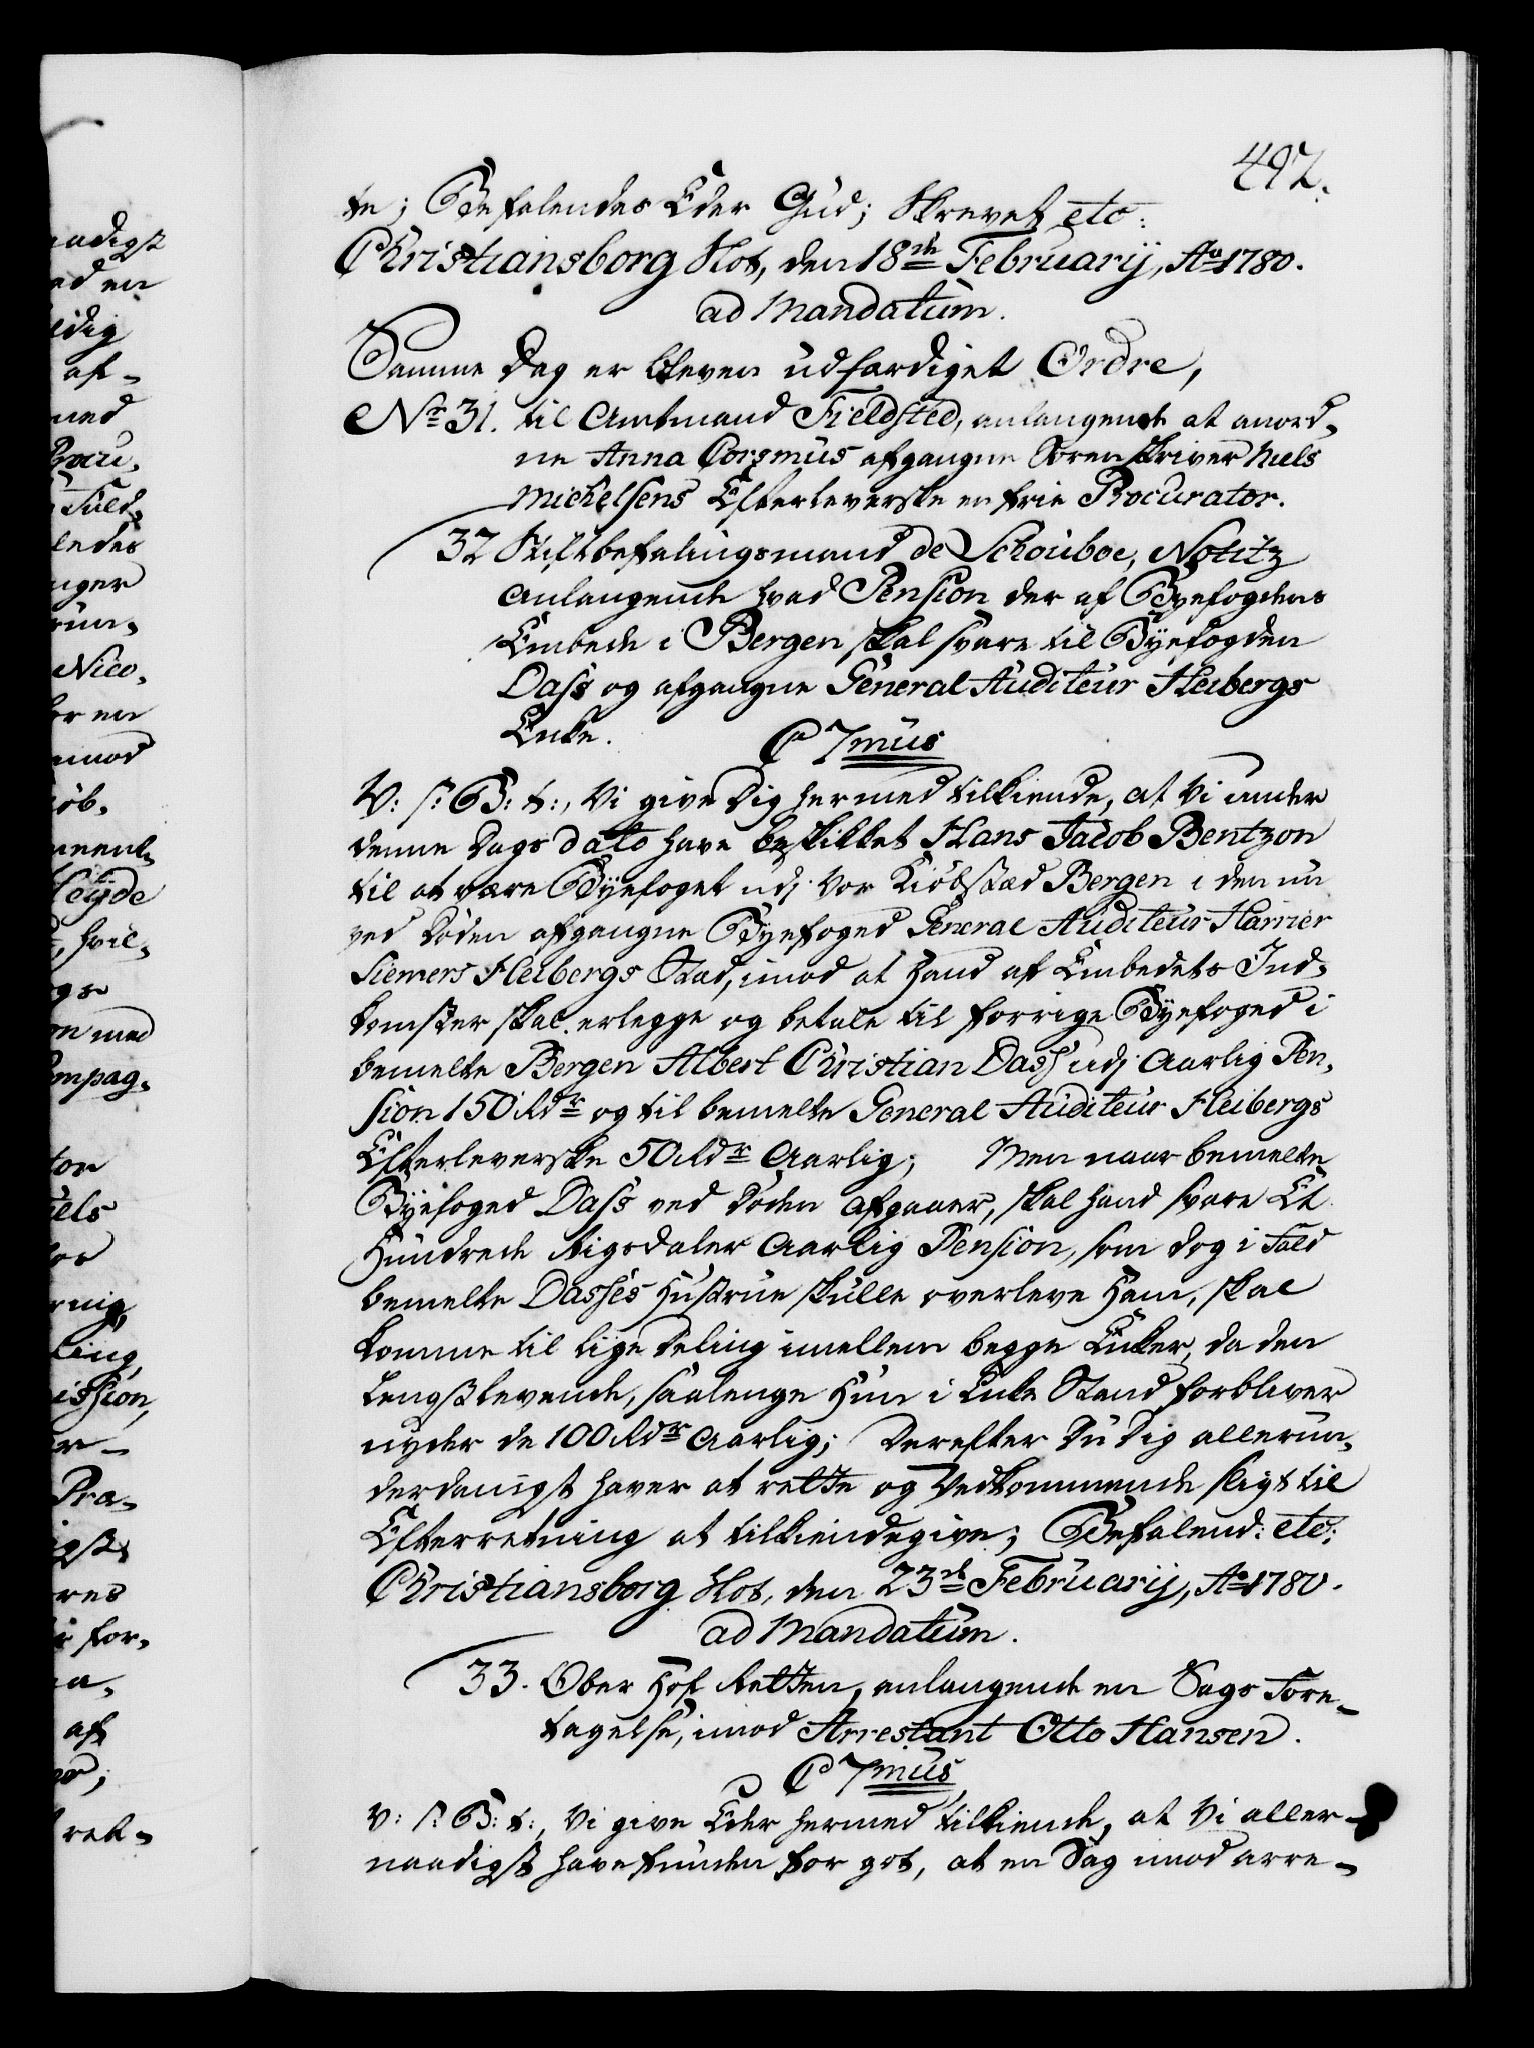 492.
te; Befalendes Eder Gud; Skrevet etc:
Christiansborg Slot, den 18de Februarij, Ao 1780.
ad Mandatum.
Samme Dag er bleven udfærdiget Ordre,
No 31. til Amtmand Fieldsted, anlangende at anord-
ne Anna Corsmus afgangne Sorenskriver Niels
Michelsens Efterleverske en frie Procurator.
32 Stiftbefalingsmand de Schouboe, Notitz
Anlangende hvad Pension der af Byefogdens
Embede i Bergen skal svare til Byefogden
Dass og afgangne General Auditeur Heibergs
Enke.
C 7mus
V: S: B: t:, Vi give Dig hermed tilkiende, at Vi under
denne Dags dato have beskikket Hans Jacob Bentzon
til at være Byefoget udj Vor Kiøbstæd Bergen i den nu
ved Døden afgangne Byefoged General Auditeur Harrier
Siemers Heibergs Stæd, imod at Hand af Embedets Ind-
komster skal erlegge og betale til forrige Byefoged i
bemelte Bergen Albert Christian Dass udj Aarlig Pen-
sion 150 Rdr og til bemelte General Auditeur Heibergs
Efterleverske 50 Rdr Aarlig; Men naar bemelte
Byefoged Dass ved Døden afgaaer, skal hand svare Et
Hundrede Rigsdaler Aarlig Pension, som dog i Fald
bemelte Dasses Hustrue skulle overleve Ham, skal
komme til lige Deling imellem begge Enker, da den
Lengstlevende, saalenge Hun i Enke Stand forbliver
nyder de 100 Rdr Aarlig; Derefter Du Dig allerun-
derdanigst haver at rette og Vedkommende sligt til
Efterretning at tilkiendegive; Befalend: etc:
Christiansborg Slot, den 23de Februarij, Ao 1780.
ad Mandatum.
33. Ober Hof Retten, anlangende en Sags Fore-
tagelse, imod Arrestant Otto Hansen.
C 7mus
V: S: B: t:, Vi give Eder hermed tilkiende, at Vi aller-
naadigst have funden for got, at en Sag imod arre-